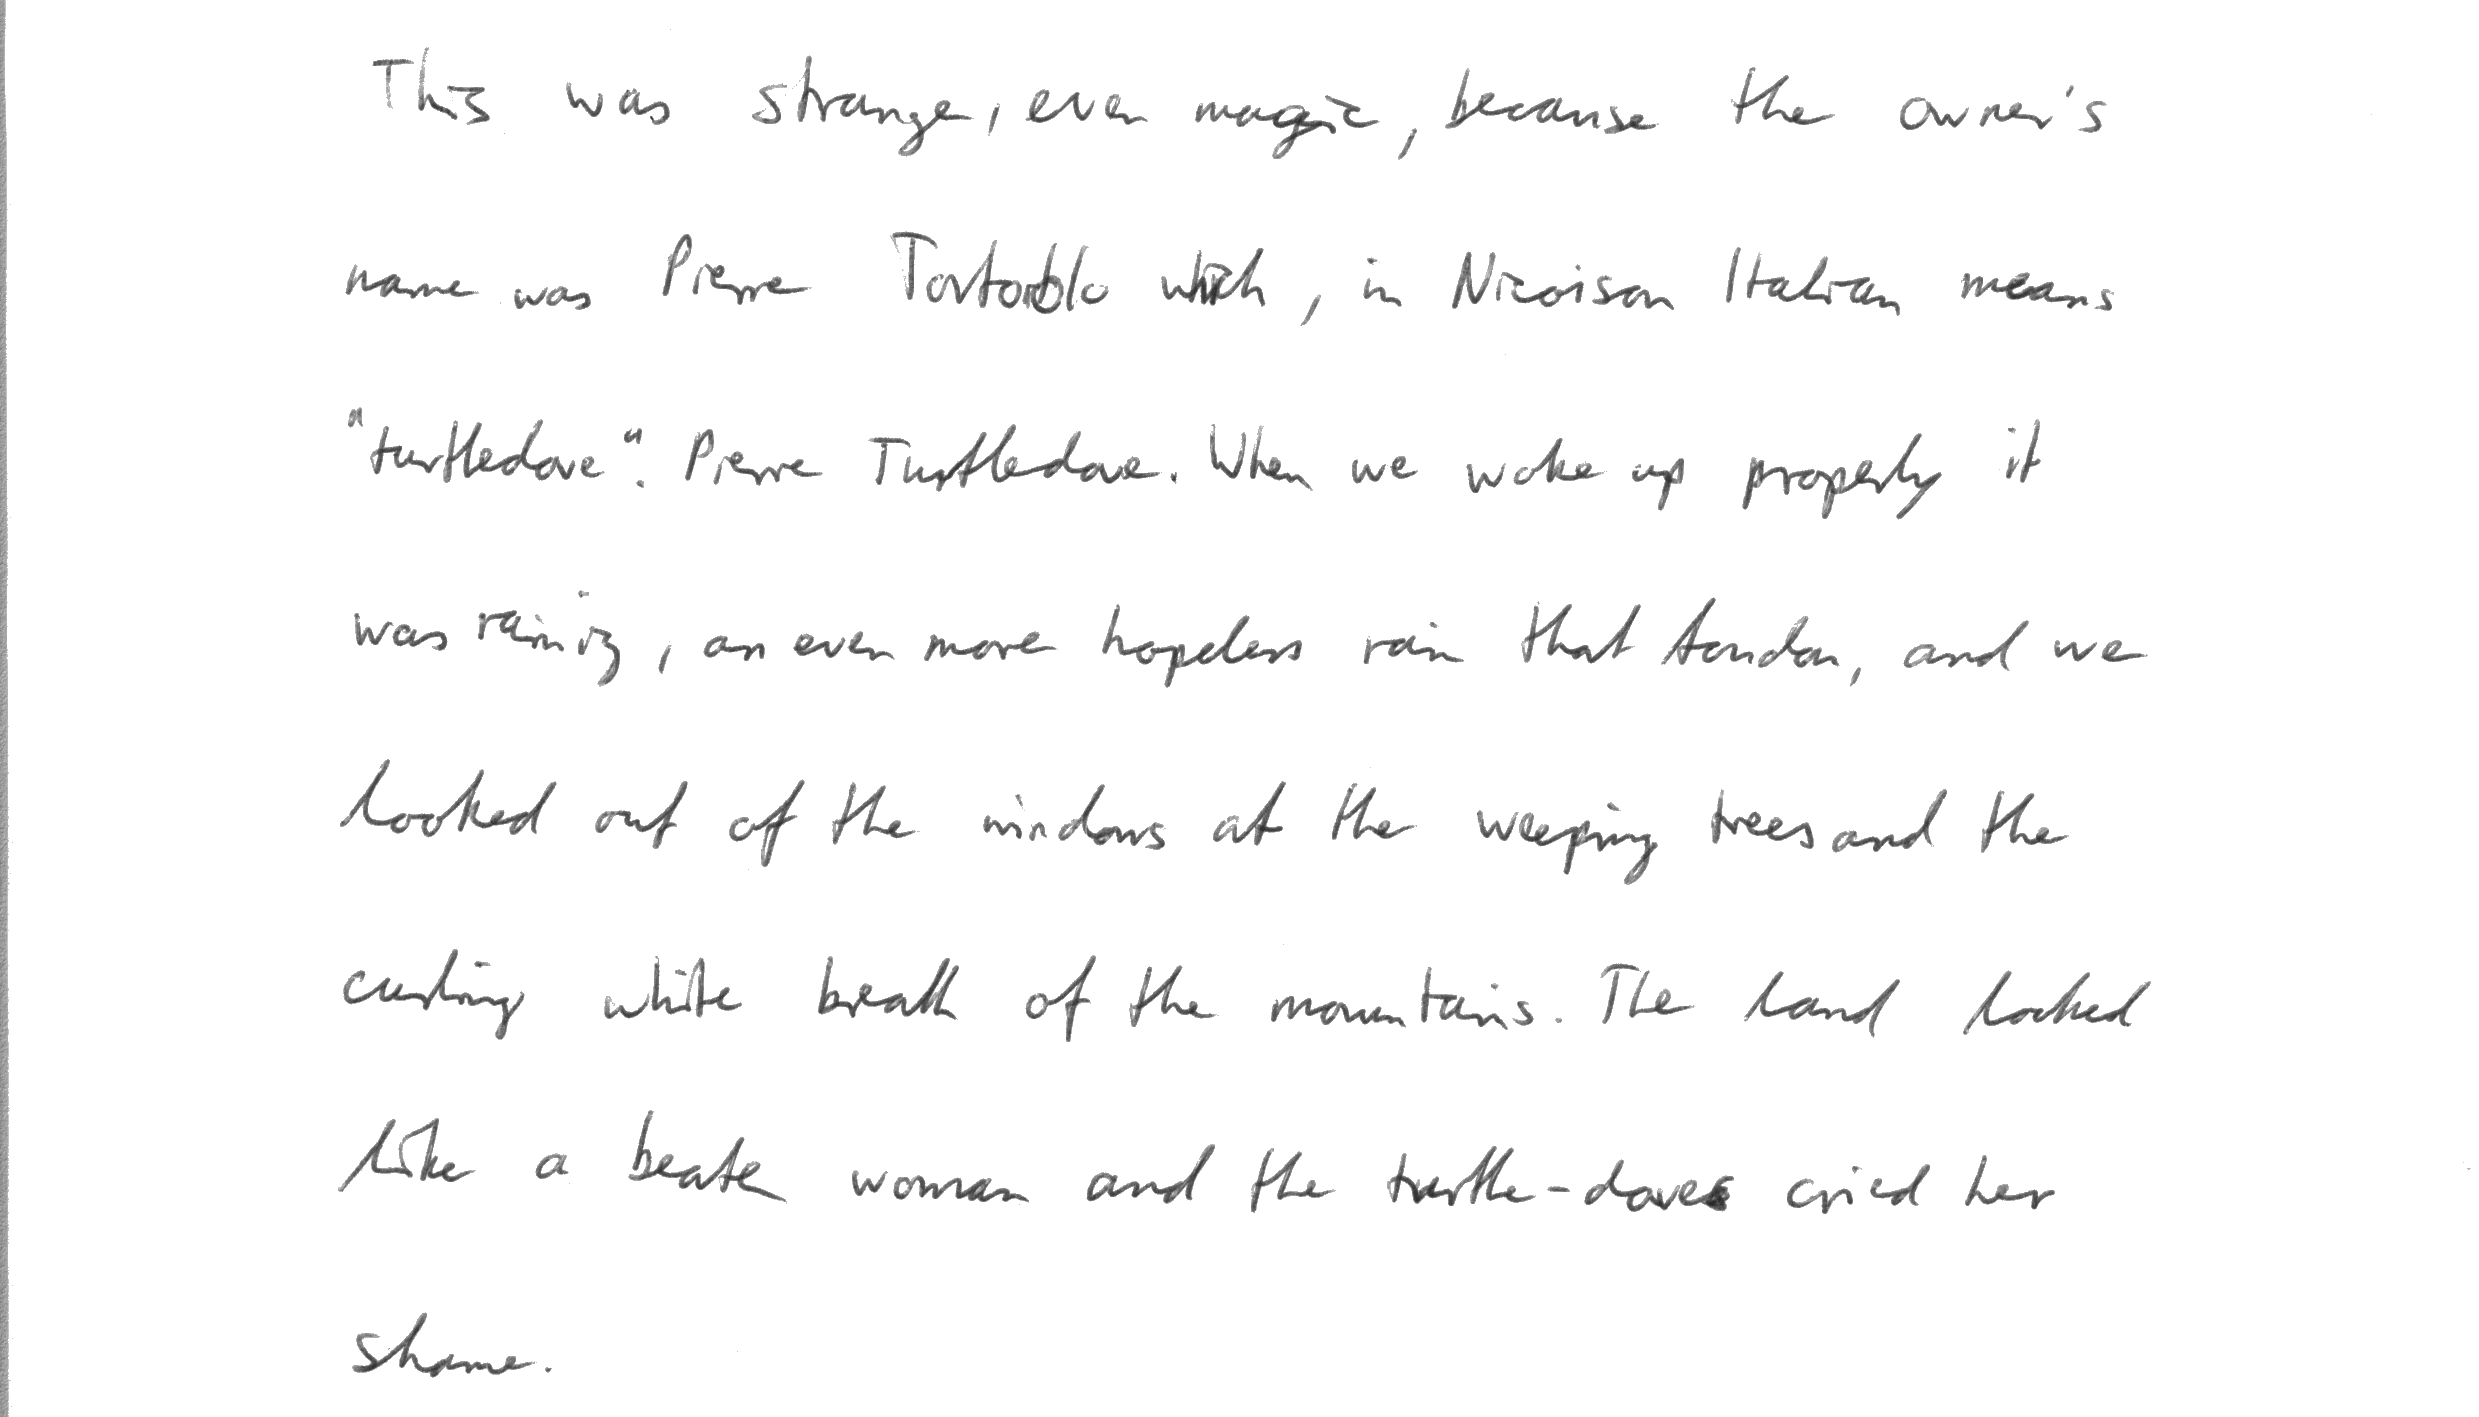 This was strange, even magic, because the owner's
name was Pierre Tortorolo which, in Nicoison Italian means
"turtledove". Pierre Turtledove. When we woke up properly it
was raining, an even more hopeless rain that London, and we
looked out of the windows at the weeping trees and the
curling white breath of the mountains. The land looked
like a beaten woman and the turtle-doves cried her
shame.